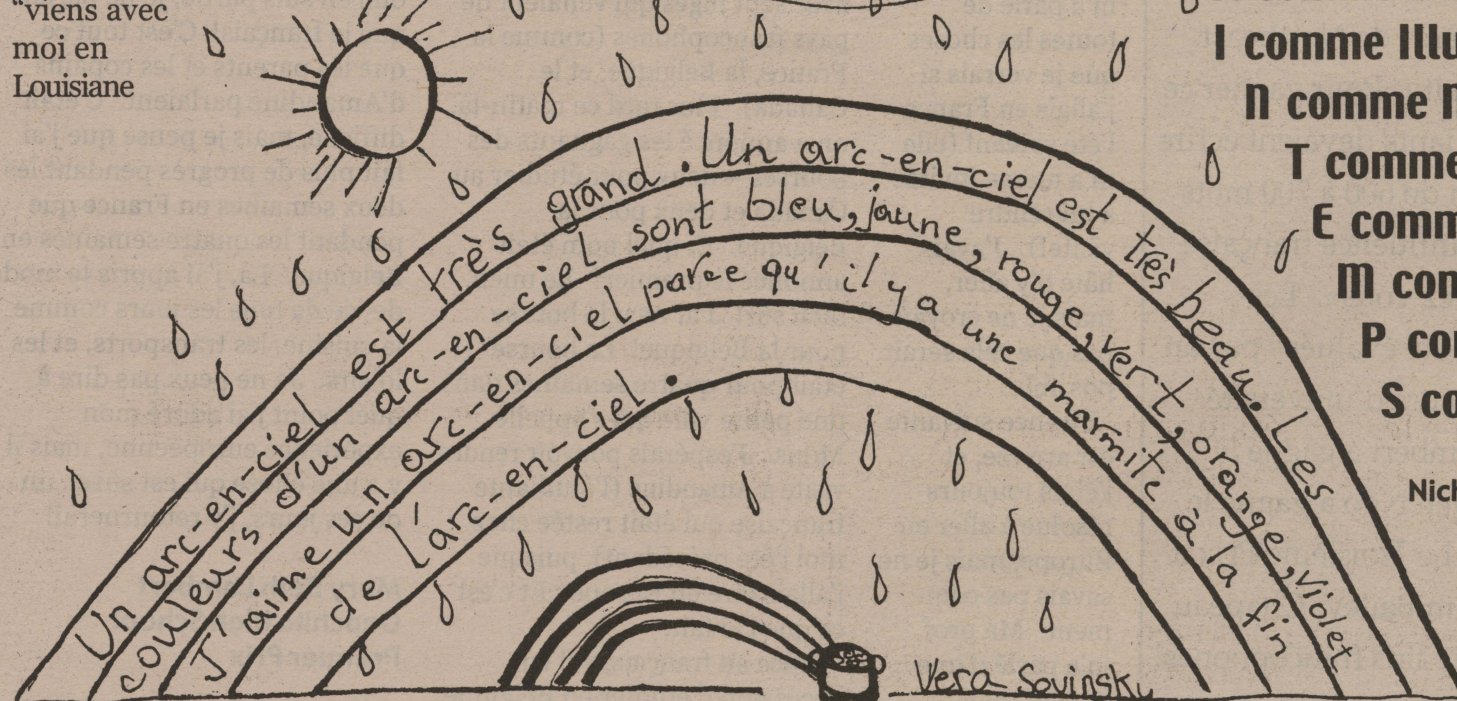 "viens avec
moi en
Louisiane
Un arc-en-ciel est très grand. Un arc-en-ciel est très beau. Les
couleurs d'un arc-en-ciel sont bleu, jaune, rouge, vert, orange, violet
J'aime un arc-en-ciel parce qu'il y a une marmite à la fin
de l'arc-en-ciel.
Vera Sovinsky
I comme Illu
N comme
T comme
E comm
M com
P co
S co
Nich